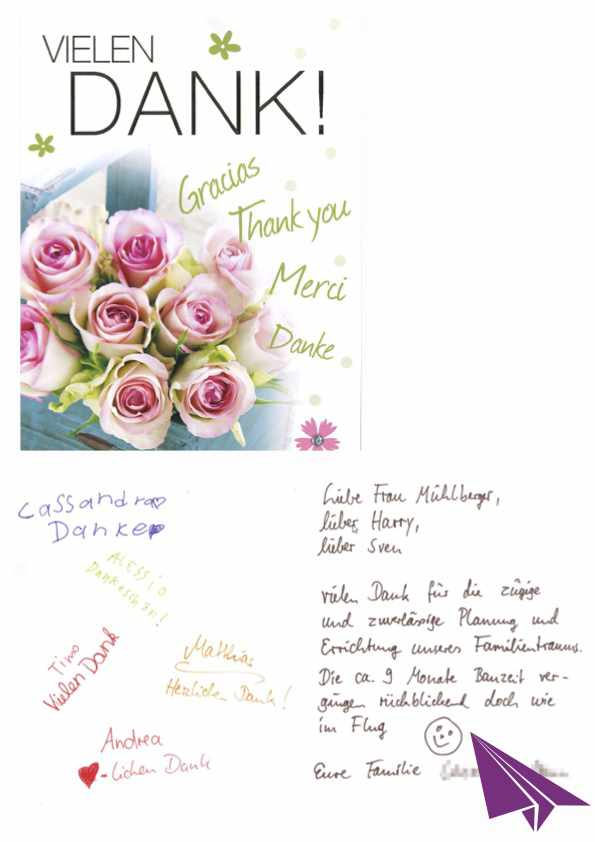 VIELEN
DANK!
Gracias
Thank you
Merci
Danke
Cassandra
Danke
ALESSIO
Dankeschön!
Tino
Vielen Dank
Matthias
Herzlichen Dank!
Andrea
-lichen Dank
Liebe Frau Mühlberger,
lieber Harry,
lieber Sven
vielen Dank für die zügige
und zuverlässige Planung und
Errichtung unseres Familientraums.
Die ca. 9 Monate Bauzeit ver-
gingen rückblickend doch wie
im Flug
Eure Familie